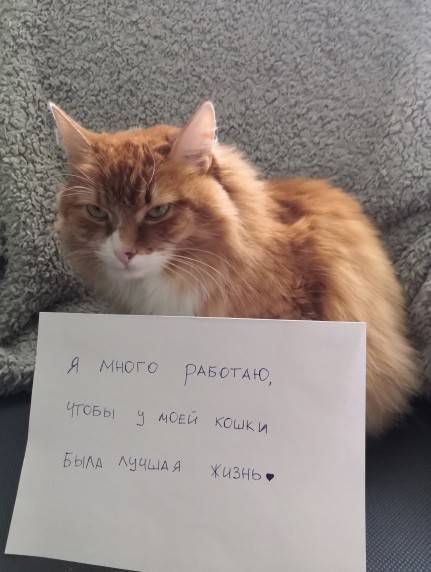 Я МНОГО РАБОТАЮ,
ЧТОБЫ У МОЕЙ КОШКИ
БЫЛА ЛУЧШАЯ ЖИЗНЬ♥